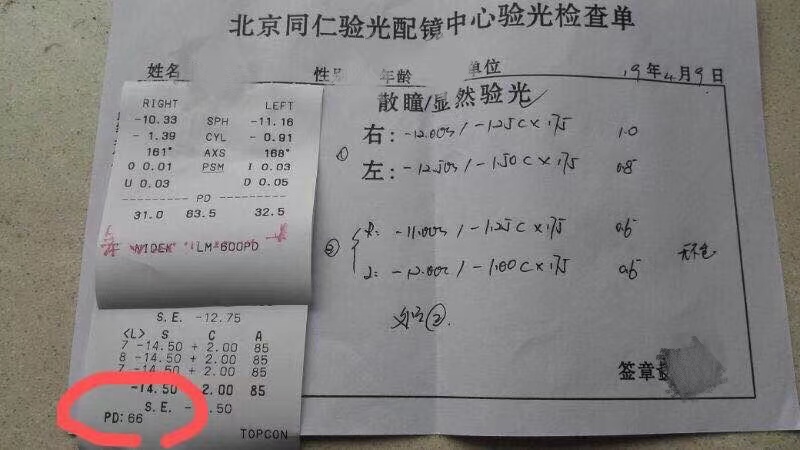 北京同仁验光配镜中心验光检查单
姓名 性别 年龄 单位 19年4月9日
散瞳/显然验光
RIGHT LEFT
-10.33 SPH -11.16
- 1.39 CYL - 0.91
161° AXS 168°
O 0.01 PSM I 0.03
U 0.03 D 0.05
PD
31.0 63.5 32.5
NIDEK LM-600PD
S.E. -12.75
<L> S C A
7 -14.50 + 2.00 85
8 -14.50 + 2.00 85
7 -14.50 + 2.00 85
-14.50 2.00 85
S.E. - .50
PD: 66
TOPCON
① 右: -12.00s / -1.25C×175 1.0
左: -12.50s / -1.50C×175 0.8
② R: -11.00s / -1.25C×175 0.6
L: -12.00s / -1.00C×175 0.6
②
签章